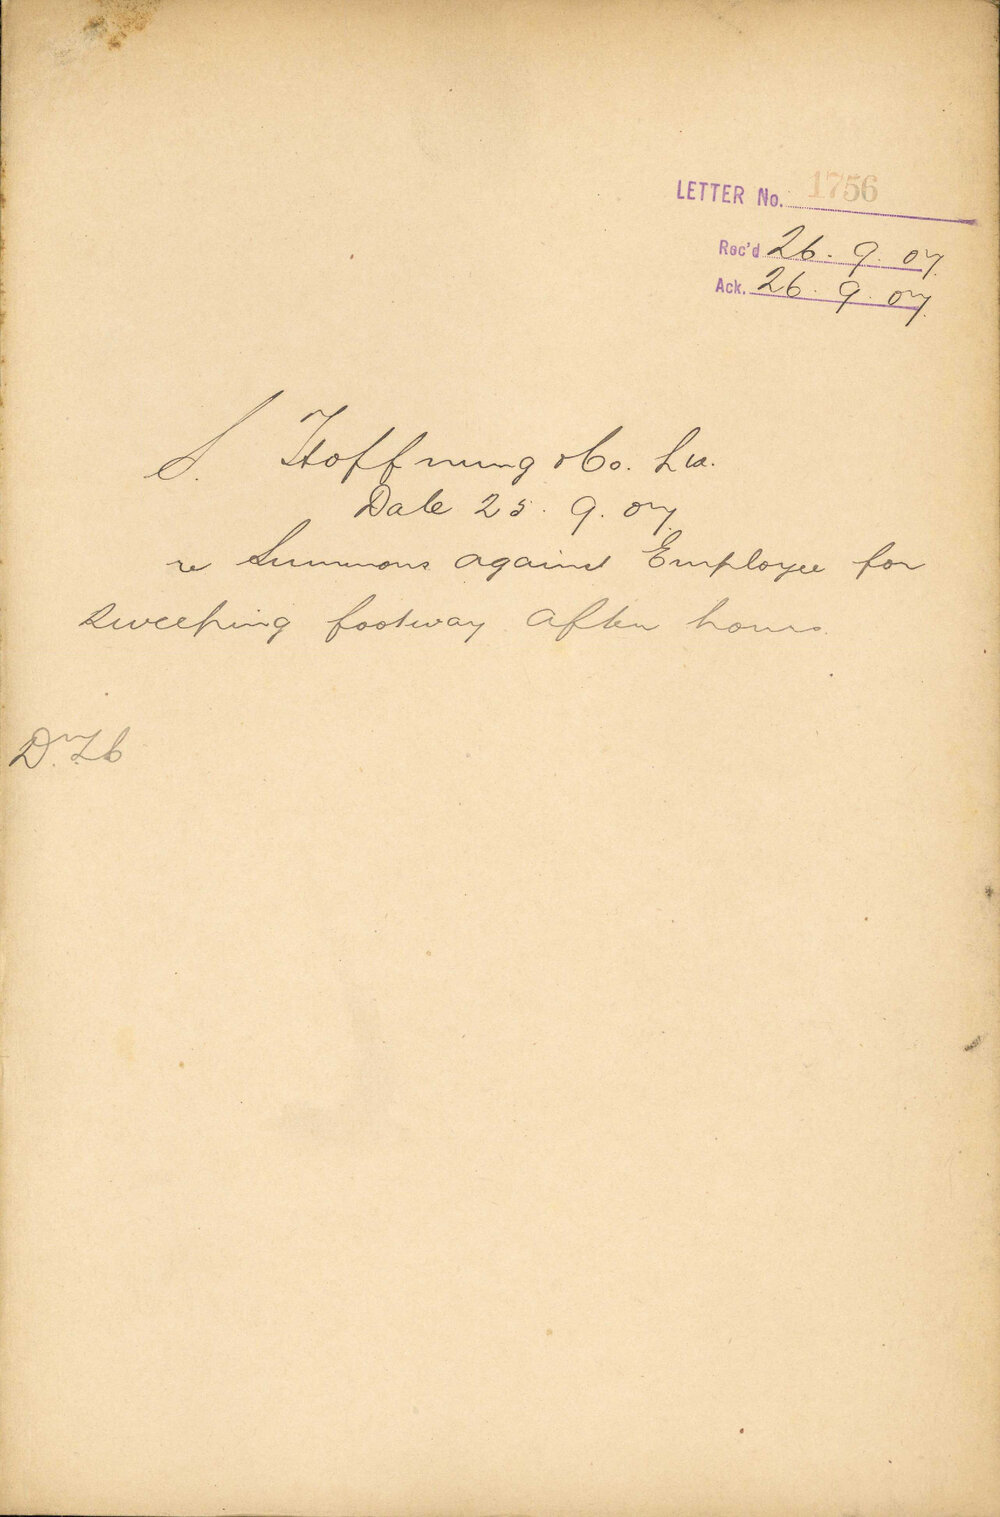 LETTER No. 1756
Rec'd 26. 9. 07.
Ack. 26. 9. 07.
S. Hoffnung & Co. Ltd.
Date 25. 9. 07
re Summons against Employee for
sweeping footway after hours.